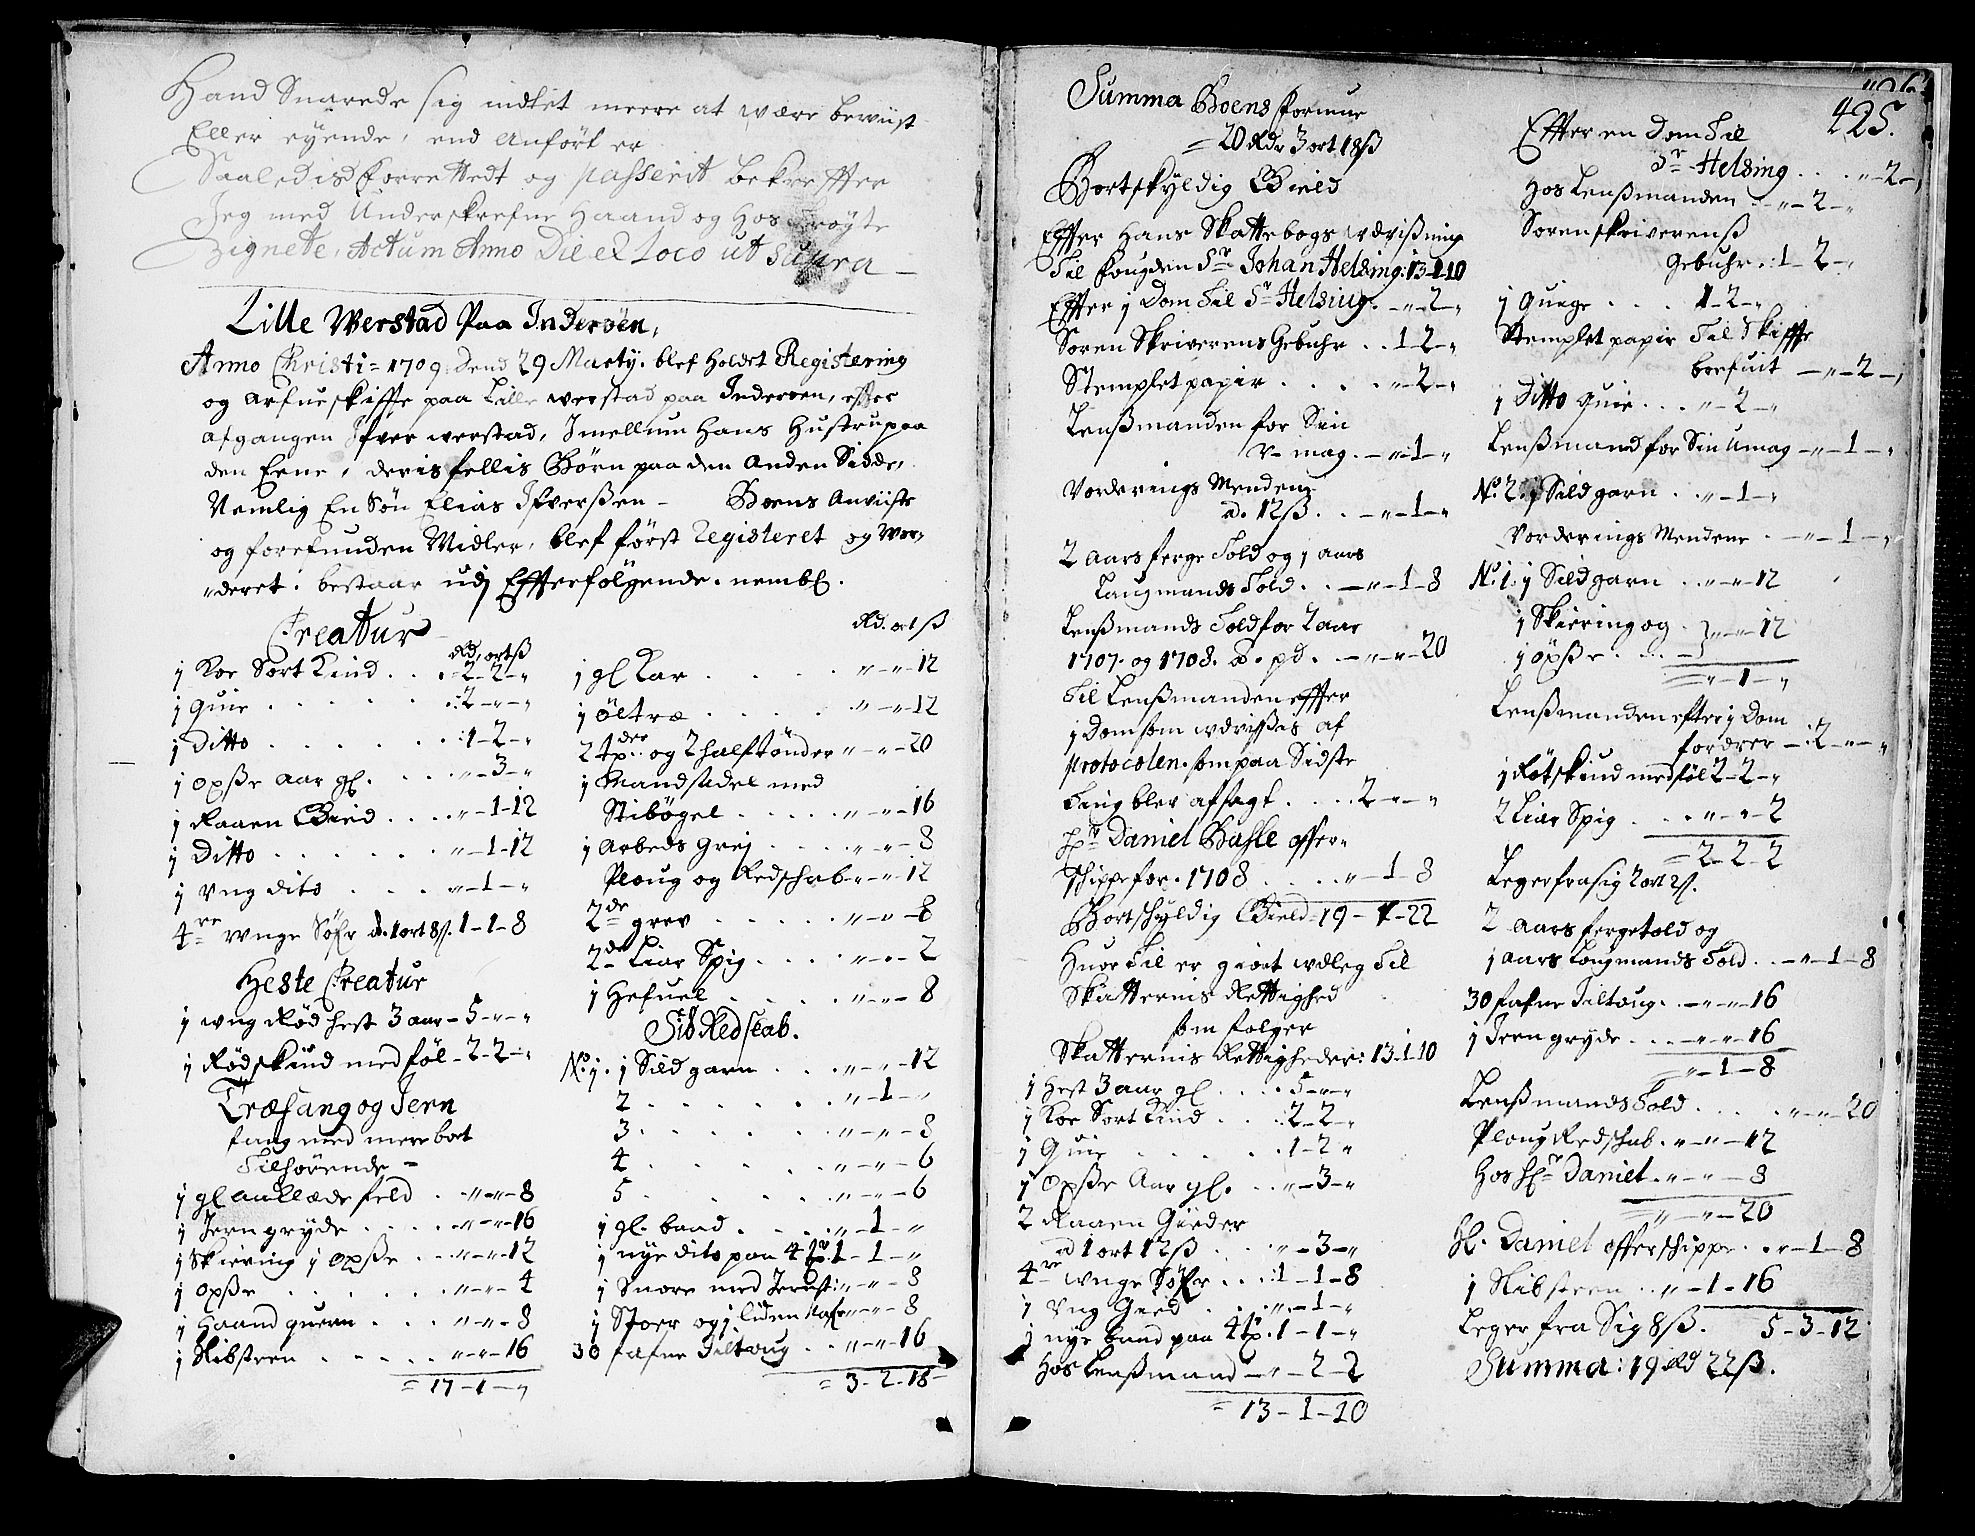 Hand Snarede sig indtet meere at være bewust
Eller eyende, end Anfört er
Saaledis forrettedt og passerit bekreffter
Jeg med Underskrefne Haand og Hos Tröyte
Zignete, Actum Anno Die et Loco ut Supra —
Lille Werstad Paa Inderöen,
Anno Christi = 1709. Dend 29 Marty. blef Holdet Registering
og Arfueskiffte paa Lille werstad paa Inderöen, effter
afgangen Ifver werstad, Imellum Hans Hustru paa
den Eene, deris fellis Börn paa den Anden Sidde,
Nemlig En Sön Elias Ifverßen — Boens Anviiste
og forefunden Midler, blef först Registeret og Wor=
deret. bestaar udj Effterfölgende. nembl.
Creatur
Rd. ort ß
1 Koe Sort Kind . . . 2-2-"
1 Quie . . . 2-"-"
1 Ditto . . . 1-2-"
1 Opße aar gl. . . . "-3-"
1 Raaen Gied . . . . "-1-12
1 Ditto . . . "-1-12
1 Vng dito . . . "-1-"
4re wnge Söfr a. 1 ort 8ß. 1-1-8
Heste Creatur
1 wng Röd hest 3 aar - 5-"-"
1 Rödskind med föl - 2-2-"
Træfang og Jern
fang med mere boet
Tilhörende —
1 gl aaklæde feld . "-"-8
1 Jern gryde . . . . "-"-16
1 Skiering 1 Opße . . "-"-12
1 Opße . . . "-"-4
1 Haand quern . . . "-"-8
1 Slibsteen . . . "-"-16
= 17-1-"
Rd. ort ß
1 gl Kar . . . "-"-12
1 öltræ . . . "-"-12
2 tp. og 2 halftönder "-"-20
1 Mandsadel med
Stibögel . . . . "-"-16
1 Arbeds Grej . . . "-"-8
Ploug og Redschab "-"-12
2de grev . . . "-"-8
2de Liar Spig . . . "-"-2
1 Hefuel . . . "-"-8
Siö Redskab.
No. 1. 1 Sild garn . . . "-"-12
2 . . . "-1-"
3 . . . "-"-8
4 . . . "-"-6
5 . . . "-"-6
1 gl. baad . . . "-1-"
1 nye dito paa 4 tp. 1-1-"
1 Snore med Jernst: "-"-8
1 Stoer og 1 liden "-"-8
30 fafne Tiltoug . . "-"-16
= 3-2-18
Summa Boens formue
= 20 Rdr 3 ort 18ß
Bortskyldig Gield
Effter Hans Skattebogs udvißning
Til fougden Sr Johan Helsing: 13-1-10
Effter 1 Dom Til Sr Helsing. - "-2-"
Soren Skriverens Gebuhr . . 1-2-"
Stemplet papir . . . "-2-"
Lenßmanden for Sin
V-mag. - "-1-"
Vorderings Mendene
a. 12ß . . - "-1-"
2 aars ferge Told og 1 aars
Laugmands Told . . - "-1-8
Lenßmands Told for 2 aar
1707. og 1708. a. pd. - "-"-20
Til Lenßmanden effter
1 Dom som udvißis af
protocolen. som paa Sidste
Ting blev afsagt . . . 2-"-"
Hr Daniel Hasle offer=
schippe for. 1708 . . . "-1-8
Bortschyldig Gield = 19-1-22
Huor Til er giort udleg Til
Skatternis Rettighed
som folger
Skatternis Rettigheder: 13-1-10
1 Hest 3 aar gl . . . 5-"-"
1 Koe Sort Kind . . . 2-2-"
1 Quie . . . 1-2-"
1 Opße Aar gl. . . "-3-"
2 Raaen Gieder
ad 1 ort 12ß . . . "-3-"
4re wnge Söfr . . . 1-1-8
1 Vng Gied . . . "-1-"
1 nye baad paa 4 tp. 1-1-"
Hos Lenßmand - "-2-2
= 13-1-10
425.
Effter en Dom Til
Sr Helsing . . . "-2-"
Hos Lenßmanden - "-2-"
Sorenskriverenß
Gebuhr . 1-2-"
1 Quige . . . 1-2-"
Stemplet papir Til Skiffte
brefuit - "-2-"
1 Ditto Quie . . . "-2-"
Lenßmand for Sin Umag - "-1-"
No. 2. 1 Sildgarn . . "-1-"
Vorderings Mendene . - "-1-"
No. 1. 1 Sildgarn . . "-"-12
1 Skiering og
1 öpße . . . "-"-12
"-1-"
Lenßmanden efter 1 Dom
fordrer - 2-"-"
1 Rötskind med föl 2-2-"
2 Liar Spig . . . "-"-2
= 2-2-2
Leger fra sig 2 ort 2ß.
2 Aars fergetold og
1 aars Laugmands Told . . - "-1-8
30 fafne Tiltoug. - "-"-16
1 Jern gryde . . . "-"-16
"-1-8
Lenßmands Told . . . "-"-20
Ploug Redschab . "-"-12
Hos Hr Daniel . "-"-8
"-"-20
Hr. Daniel offerschippe . . "-1-8
1 Slibsteen . . "-1-16
Leger fra Sig 8ß. 5-3-12
Summa: 19 Rd 22ß.